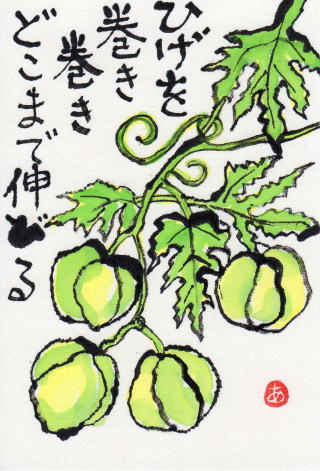 ひげを
巻き
巻き
どこまで伸びる
あ